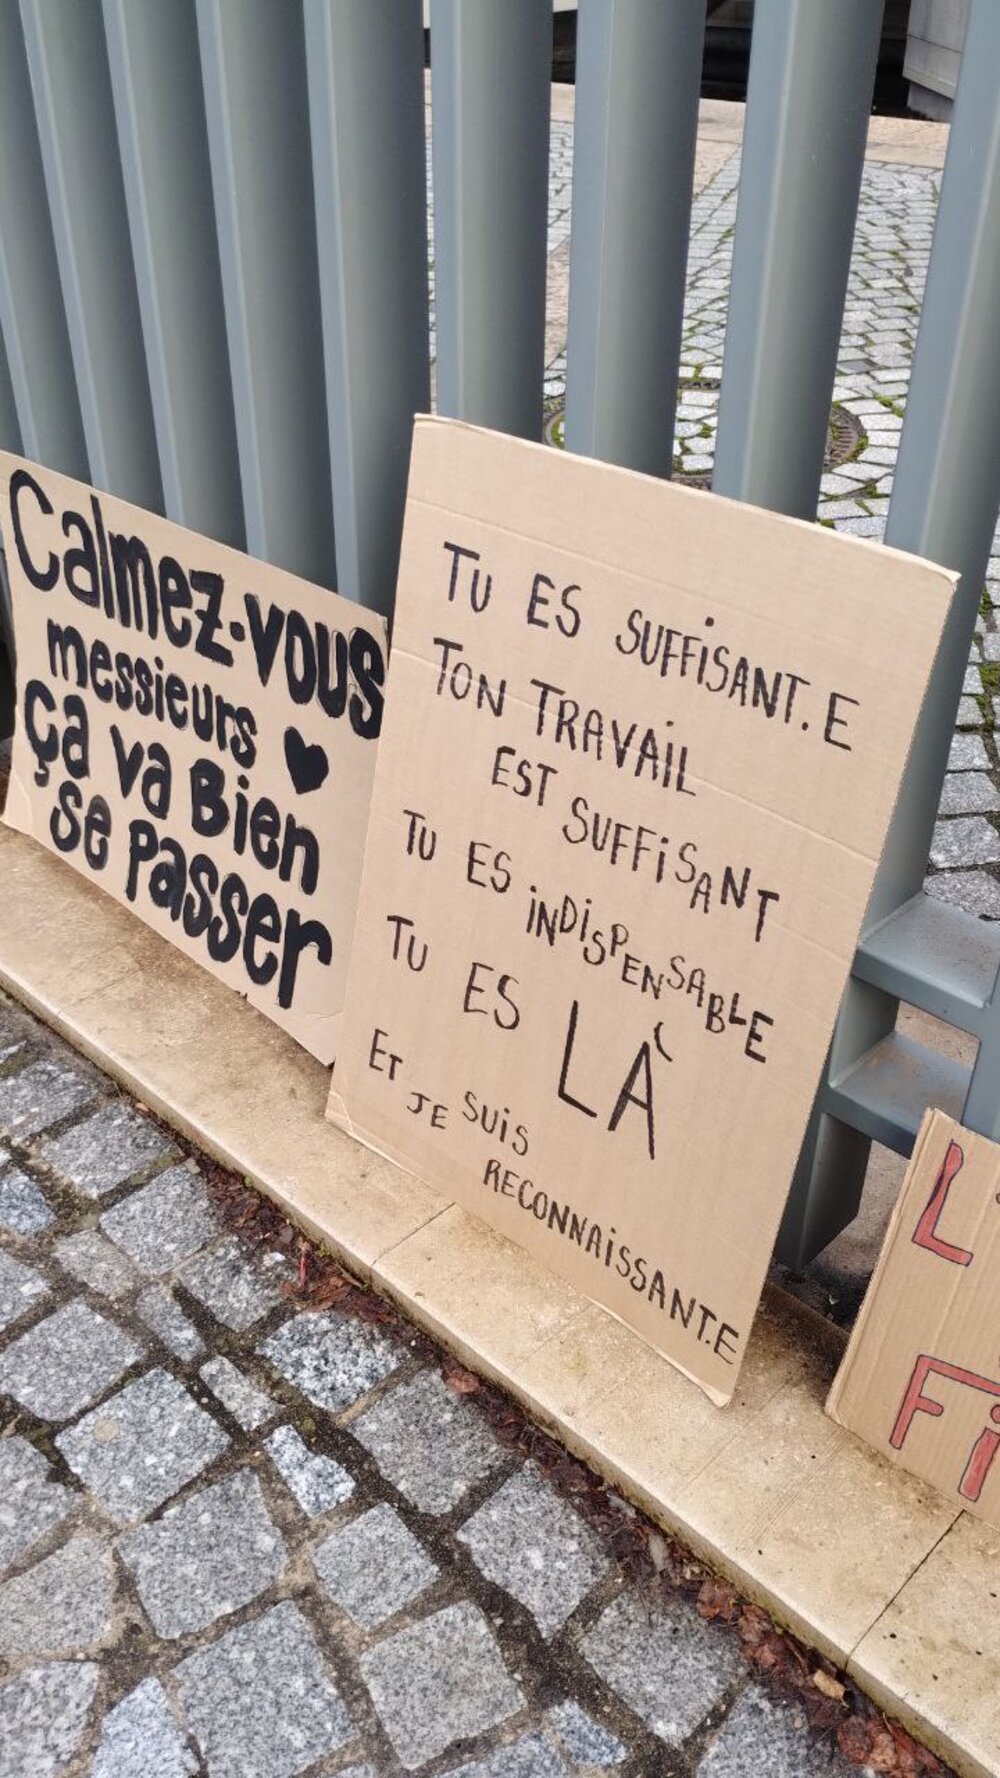 Calmez-vous
messieurs ♥
ça va Bien
se Passer
TU ES SUFFISANT.E
TON TRAVAIL
EST SUFFISANT
TU ES INDISPENSABLE
TU ES LÀ
ET JE SUIS
RECONNAISSANT.E
L
Fi